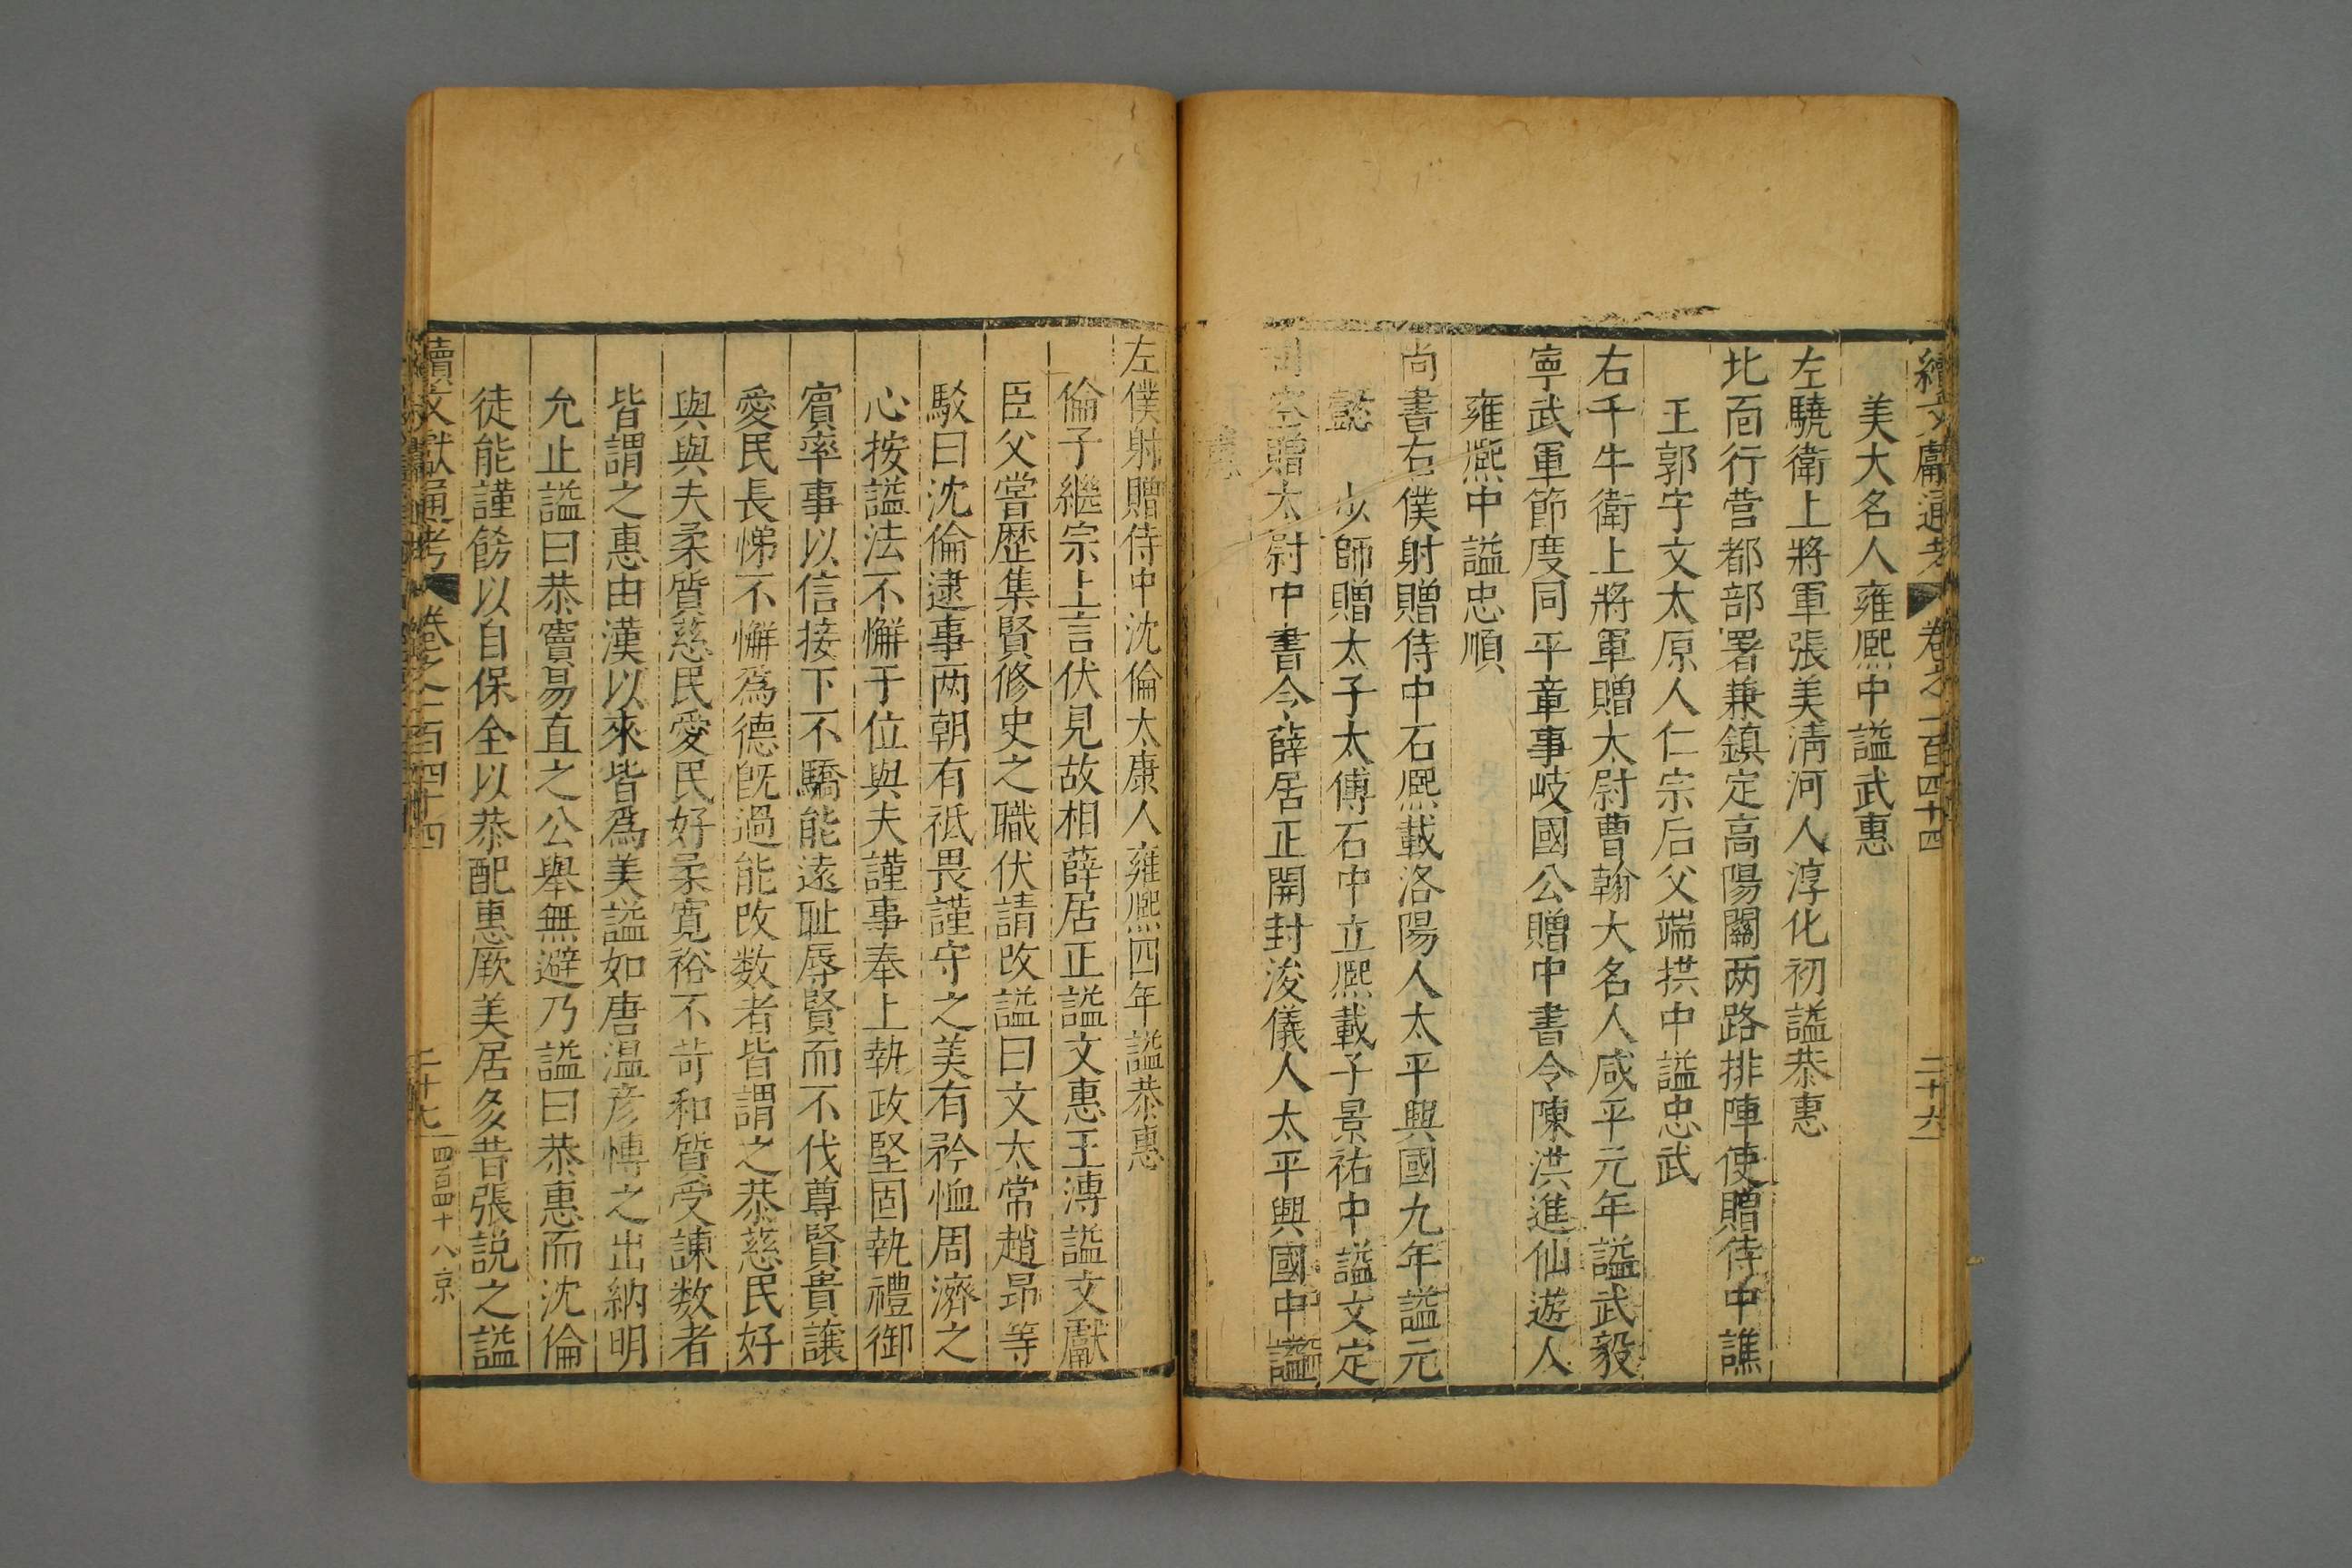 續文獻通考 卷之一百四十四 二十六
美大名人雍熙中謚武惠
左驍衛上將軍張美淸河人淳化初謚恭惠
北面行营都部署兼鎮定高陽關两路排陣使贈侍中譙
王郭守文太原人仁宗后父端拱中謚忠武
右千牛衛上將軍贈太尉曹翰大名人咸平元年謚武毅
寧武軍節度同平章事岐國公贈中書令陳洪進仙遊人
雍熙中謚忠順
尚書右僕射贈侍中石熙載洛陽人太平興國九年謚元
懿 少師贈太子太傅石中立熙載子景祐中謚文定
司空贈太尉中書令薛居正開封浚儀人太平興國中謚
左僕射贈侍中沈倫太康人雍熙四年謚恭惠
倫子繼宗上言伏見故相薛居正謚文惠王溥謚文獻
臣父嘗歷集賢修史之職伏請改謚曰文太常趙昂等
駁曰沈倫逮事两朝有祗畏謹守之美有矜恤周濟之
心按謚法不懈于位與夫謹事奉上執政堅固執禮御
賓率事以信接下不驕能遠耻辱賢而不伐尊賢貴讓
愛民長悌不懈爲德旣過能改数者皆謂之恭慈民好
與與夫柔質慈民愛民好柔寛裕不苛和質受諫数者
皆謂之惠由漢以來皆爲美謚如唐温彦愽之出納明
允止謚曰恭竇易直之公舉無避乃謚曰恭惠而沈倫
徒能謹飭以自保全以恭配惠厥美居多昔張説之謚
續文獻通考 卷之一百四十四 二十七 四百四十八 京